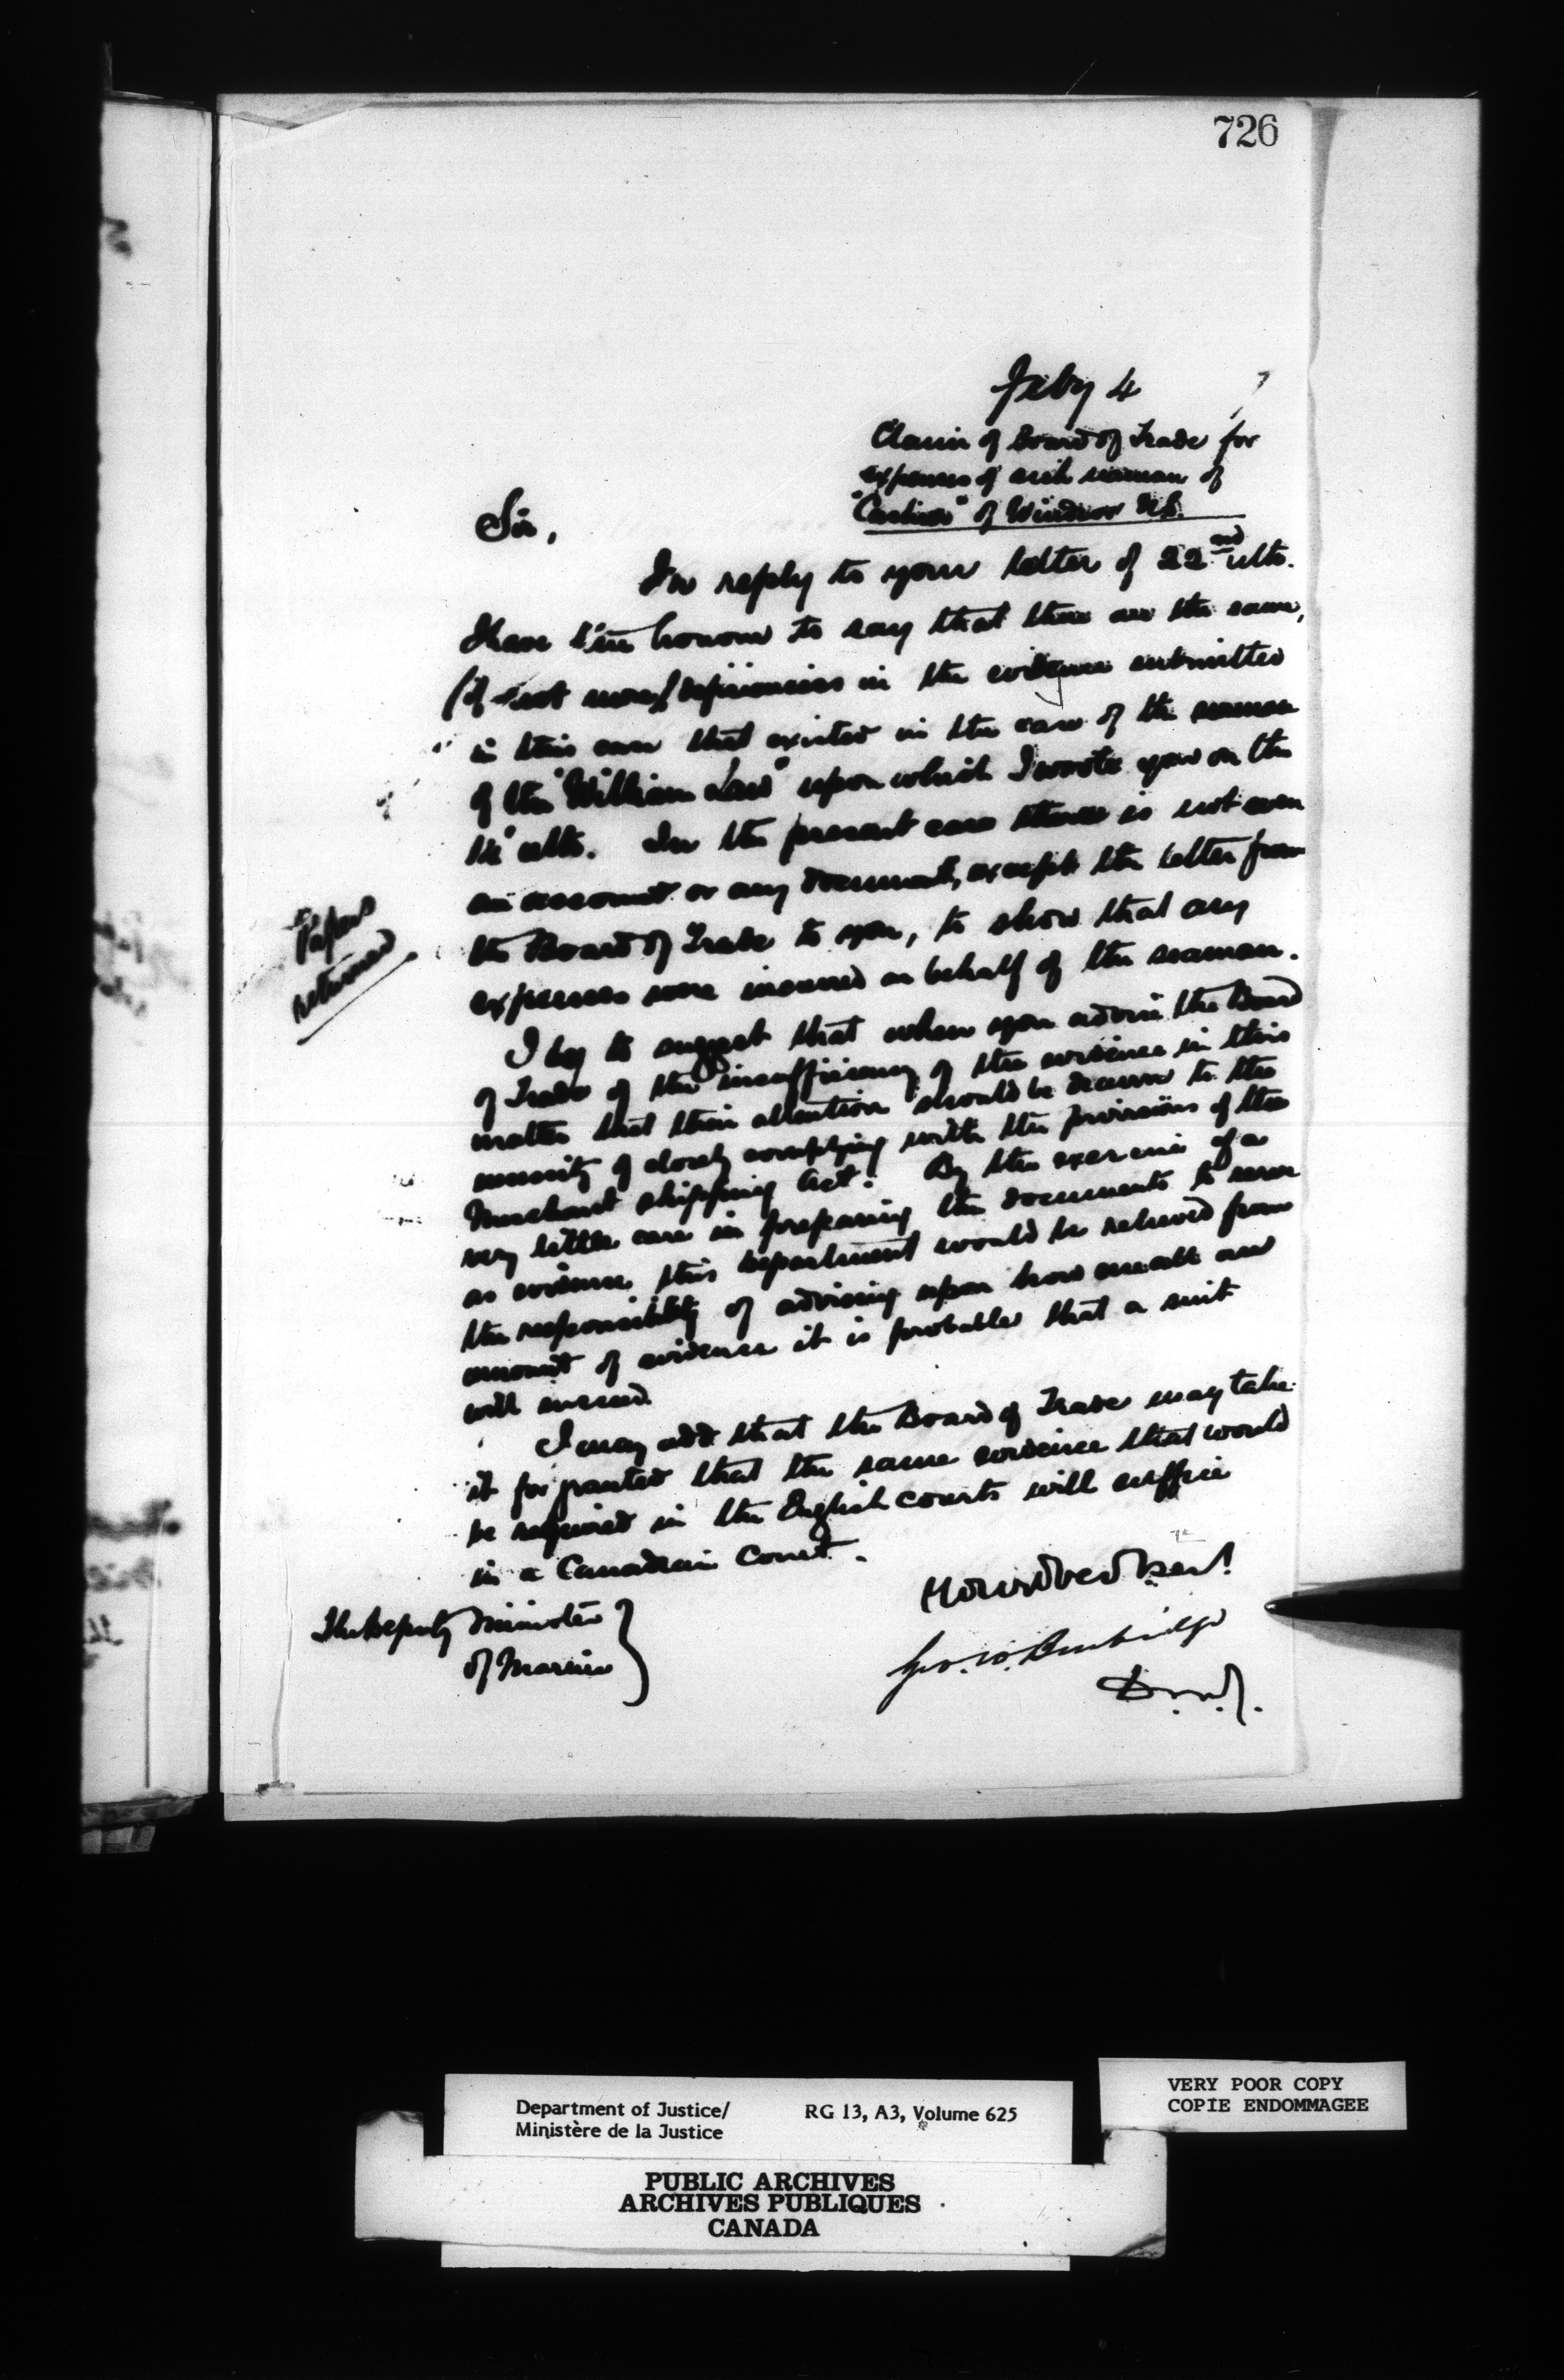 726
Feby 4 7
Claim of Board of Trade for
expenses of sick seaman of
" " of Windsor N.S.
Sir,
In reply to your letter of 22nd ulto.
I have the honour to say that there are the same,
(if not more) deficiencies in the evidence submitted
in this case that existed in the case of the seaman
of the "William Law" upon which I wrote you on the
ulto. In the present case there is not even
an account or any document, except the letter from
the Board of Trade to you, to show that any
expenses were incurred on behalf of the seaman.
Papers
returned
I beg to suggest that when you advise the Board
of Trade of the insufficiency of the evidence in this
matter that their attention should be drawn to the
necessity of closely complying with the provisions of the
Merchant Shipping Act. By the exercise of a
very little care in preparing the documents to serve
as evidence this department would be relieved from
the responsibility of advising upon how small an
amount of evidence it is probable that a suit
will succeed.
I may add that the Board of Trade may take
it for granted that the same evidence that would
be required in the English courts will suffice
in a Canadian Court.
The Deputy Minister
of Marine
Geo. W. Burbidge
D.M.J.
Department of Justice/
Ministère de la Justice
RG 13, A3, Volume 625
VERY POOR COPY
COPIE ENDOMMAGEE
PUBLIC ARCHIVES
ARCHIVES PUBLIQUES
CANADA